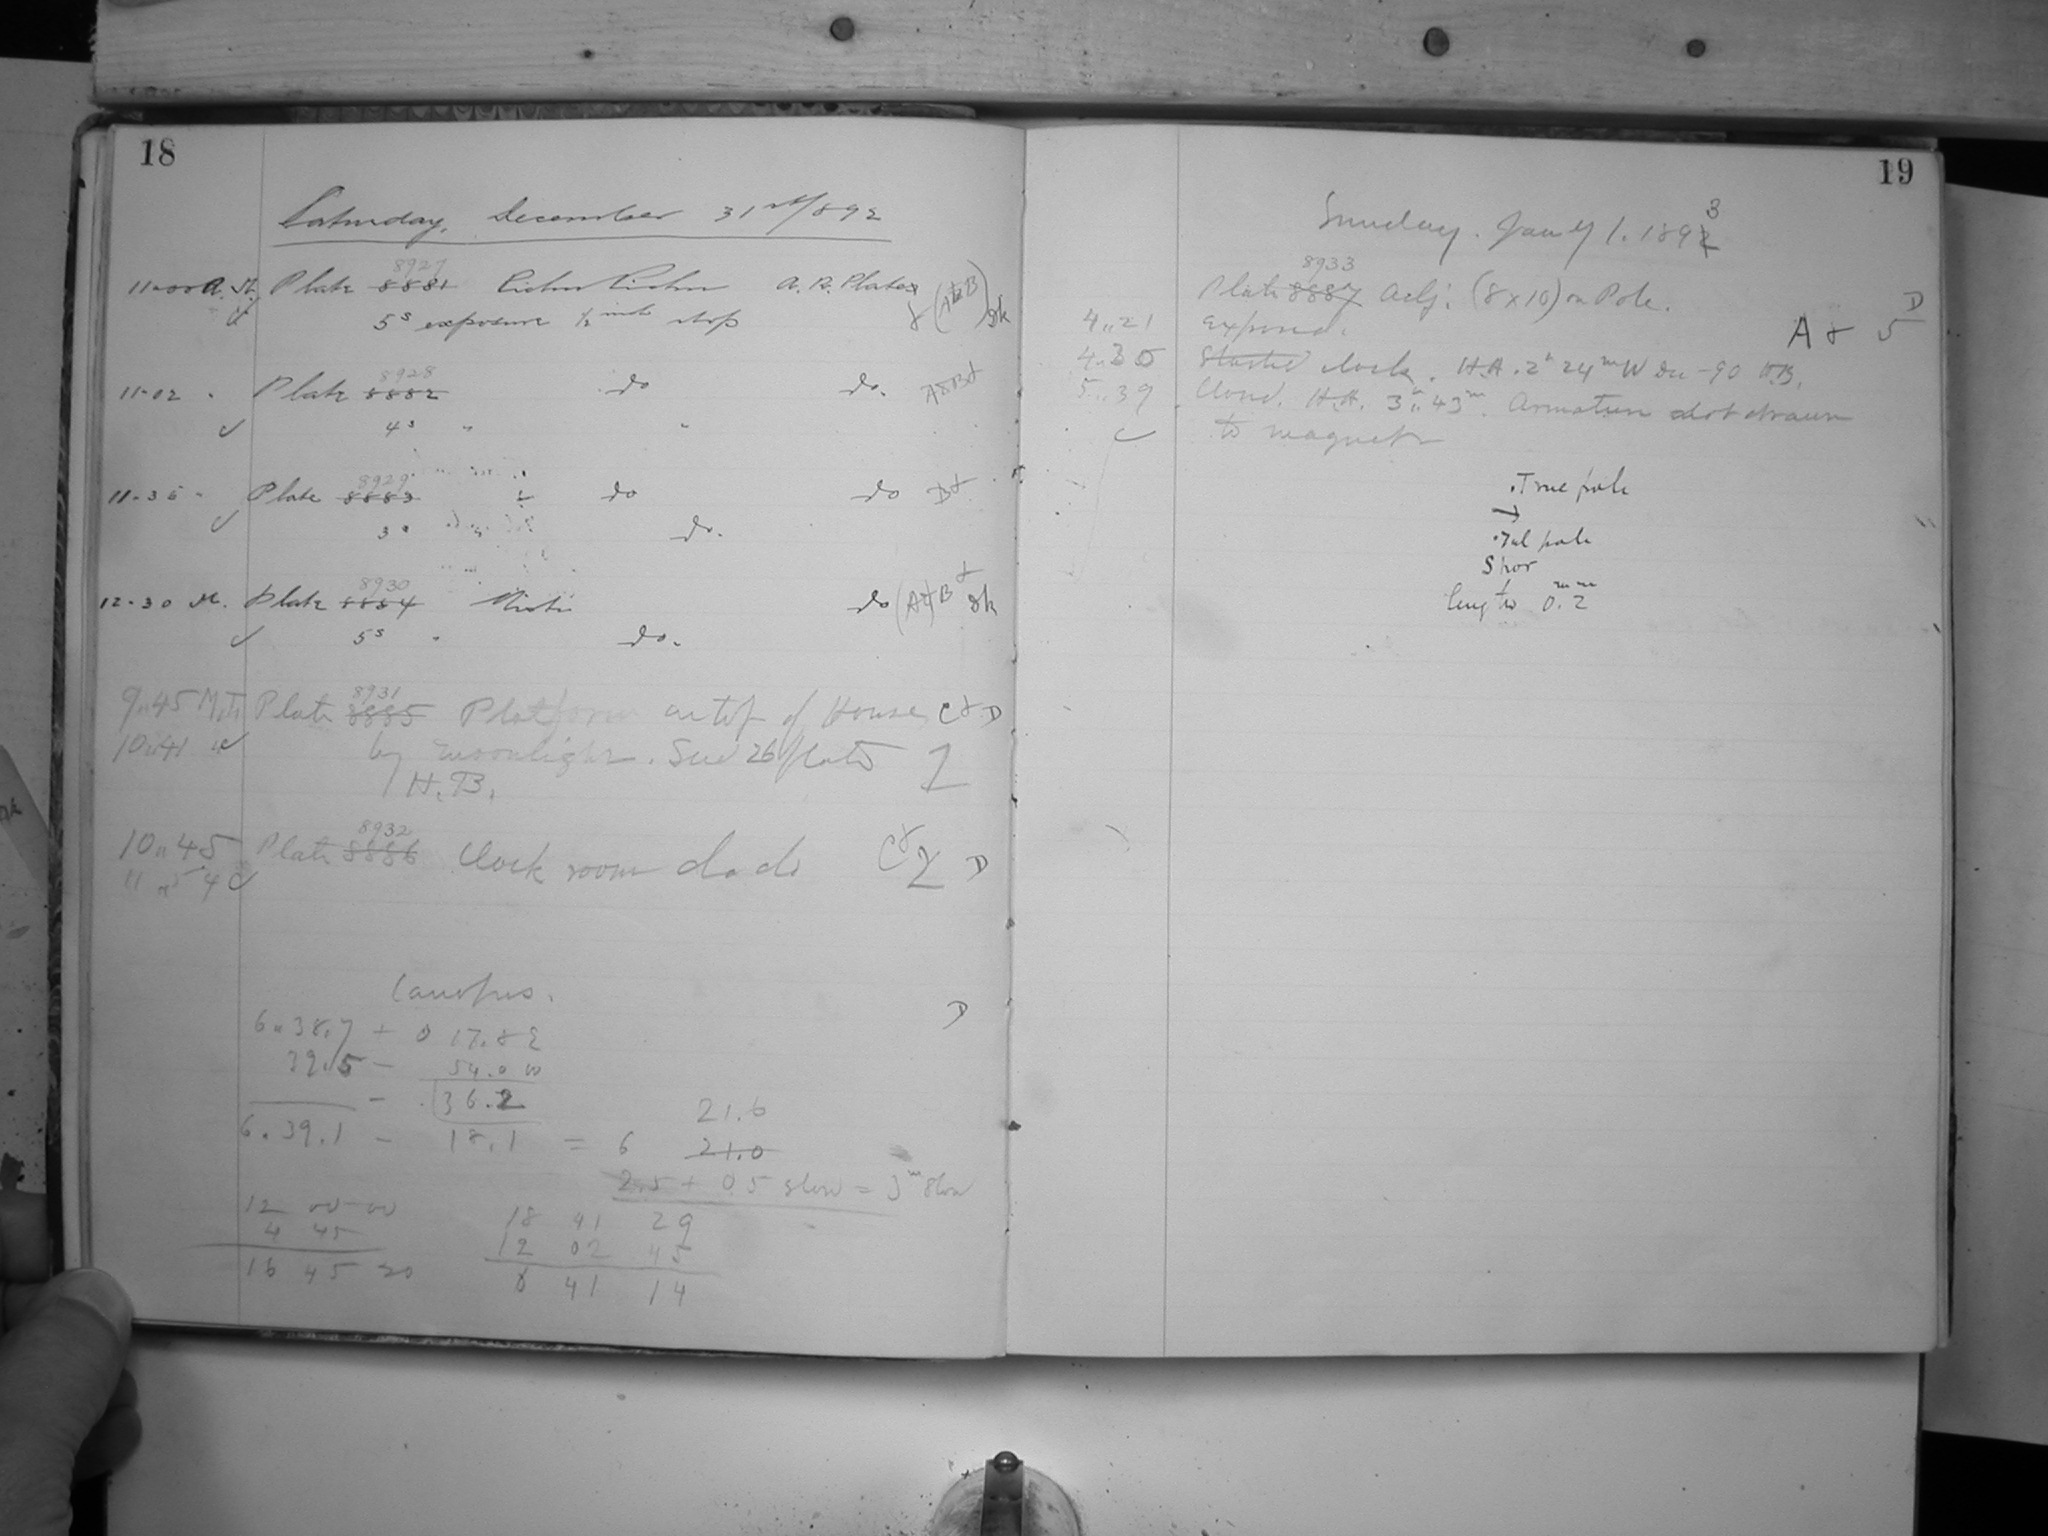 18
Saturday, December 31st/892
8927
11-00 A.M. Plate 8881 Pichu Pichu A.R. Plates
5s exposure ½ inch stop
8928
11-02 Plate 8882 do do.
4s " "
8929
11-35 " Plate 8883 do do
3s do.
8930
12-30 M. Plate 8884 Misti do
5s " do.
8931
9.45 Plate 8885 Platform on top of House C+ D
10.41 by moonlight. Seed 26 plate 2
H.B.
8932
10.45 Plate 8886 Clock room do do C+ 2 D
11.54
Canopus. D
6.38.7 + 0 17.8 E
39.5 - 54.0 W
- 36.2
6.39.1 - 18.1 = 6 21.6
21.0
2.5 + 0.5 slow = 3m slow
12 00 00 18 41 29
4 45 12 02 45
16 45 20 6 41 14
19
Sunday. Jany 1. 1892 3
8933
Plate 8887 Adj: (8x10) on Pole.
4..21 Exposed. A+ 5 D
4.30 Started clock. H.A. 2h 24m W Dec -90 H.B.
5.39 Closed. H.A. 3h..43m. Armature not drawn
to magnet
.True pole
→
.Tel pole
length 0.2 mm